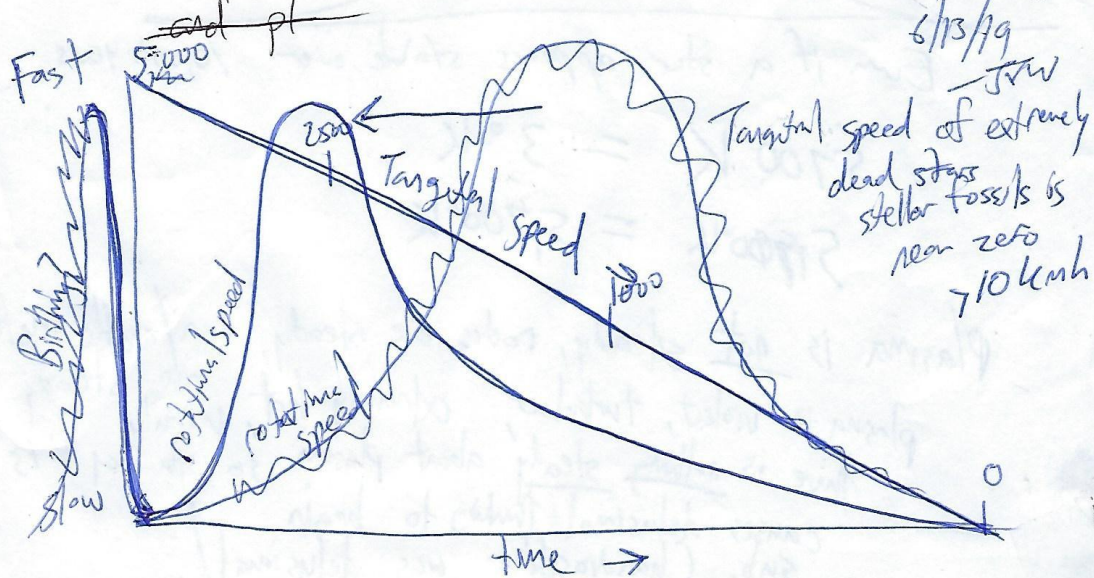 end pt
6/13/19
-JTW
Fast
5,000
km
2500
Tangital
Speed
1000
Tangitral speed of extremely
dead stars
stellar fossils is
near zero
>10 kmh
Birthing
rotational speed
rotational
speed
slow
0
time →